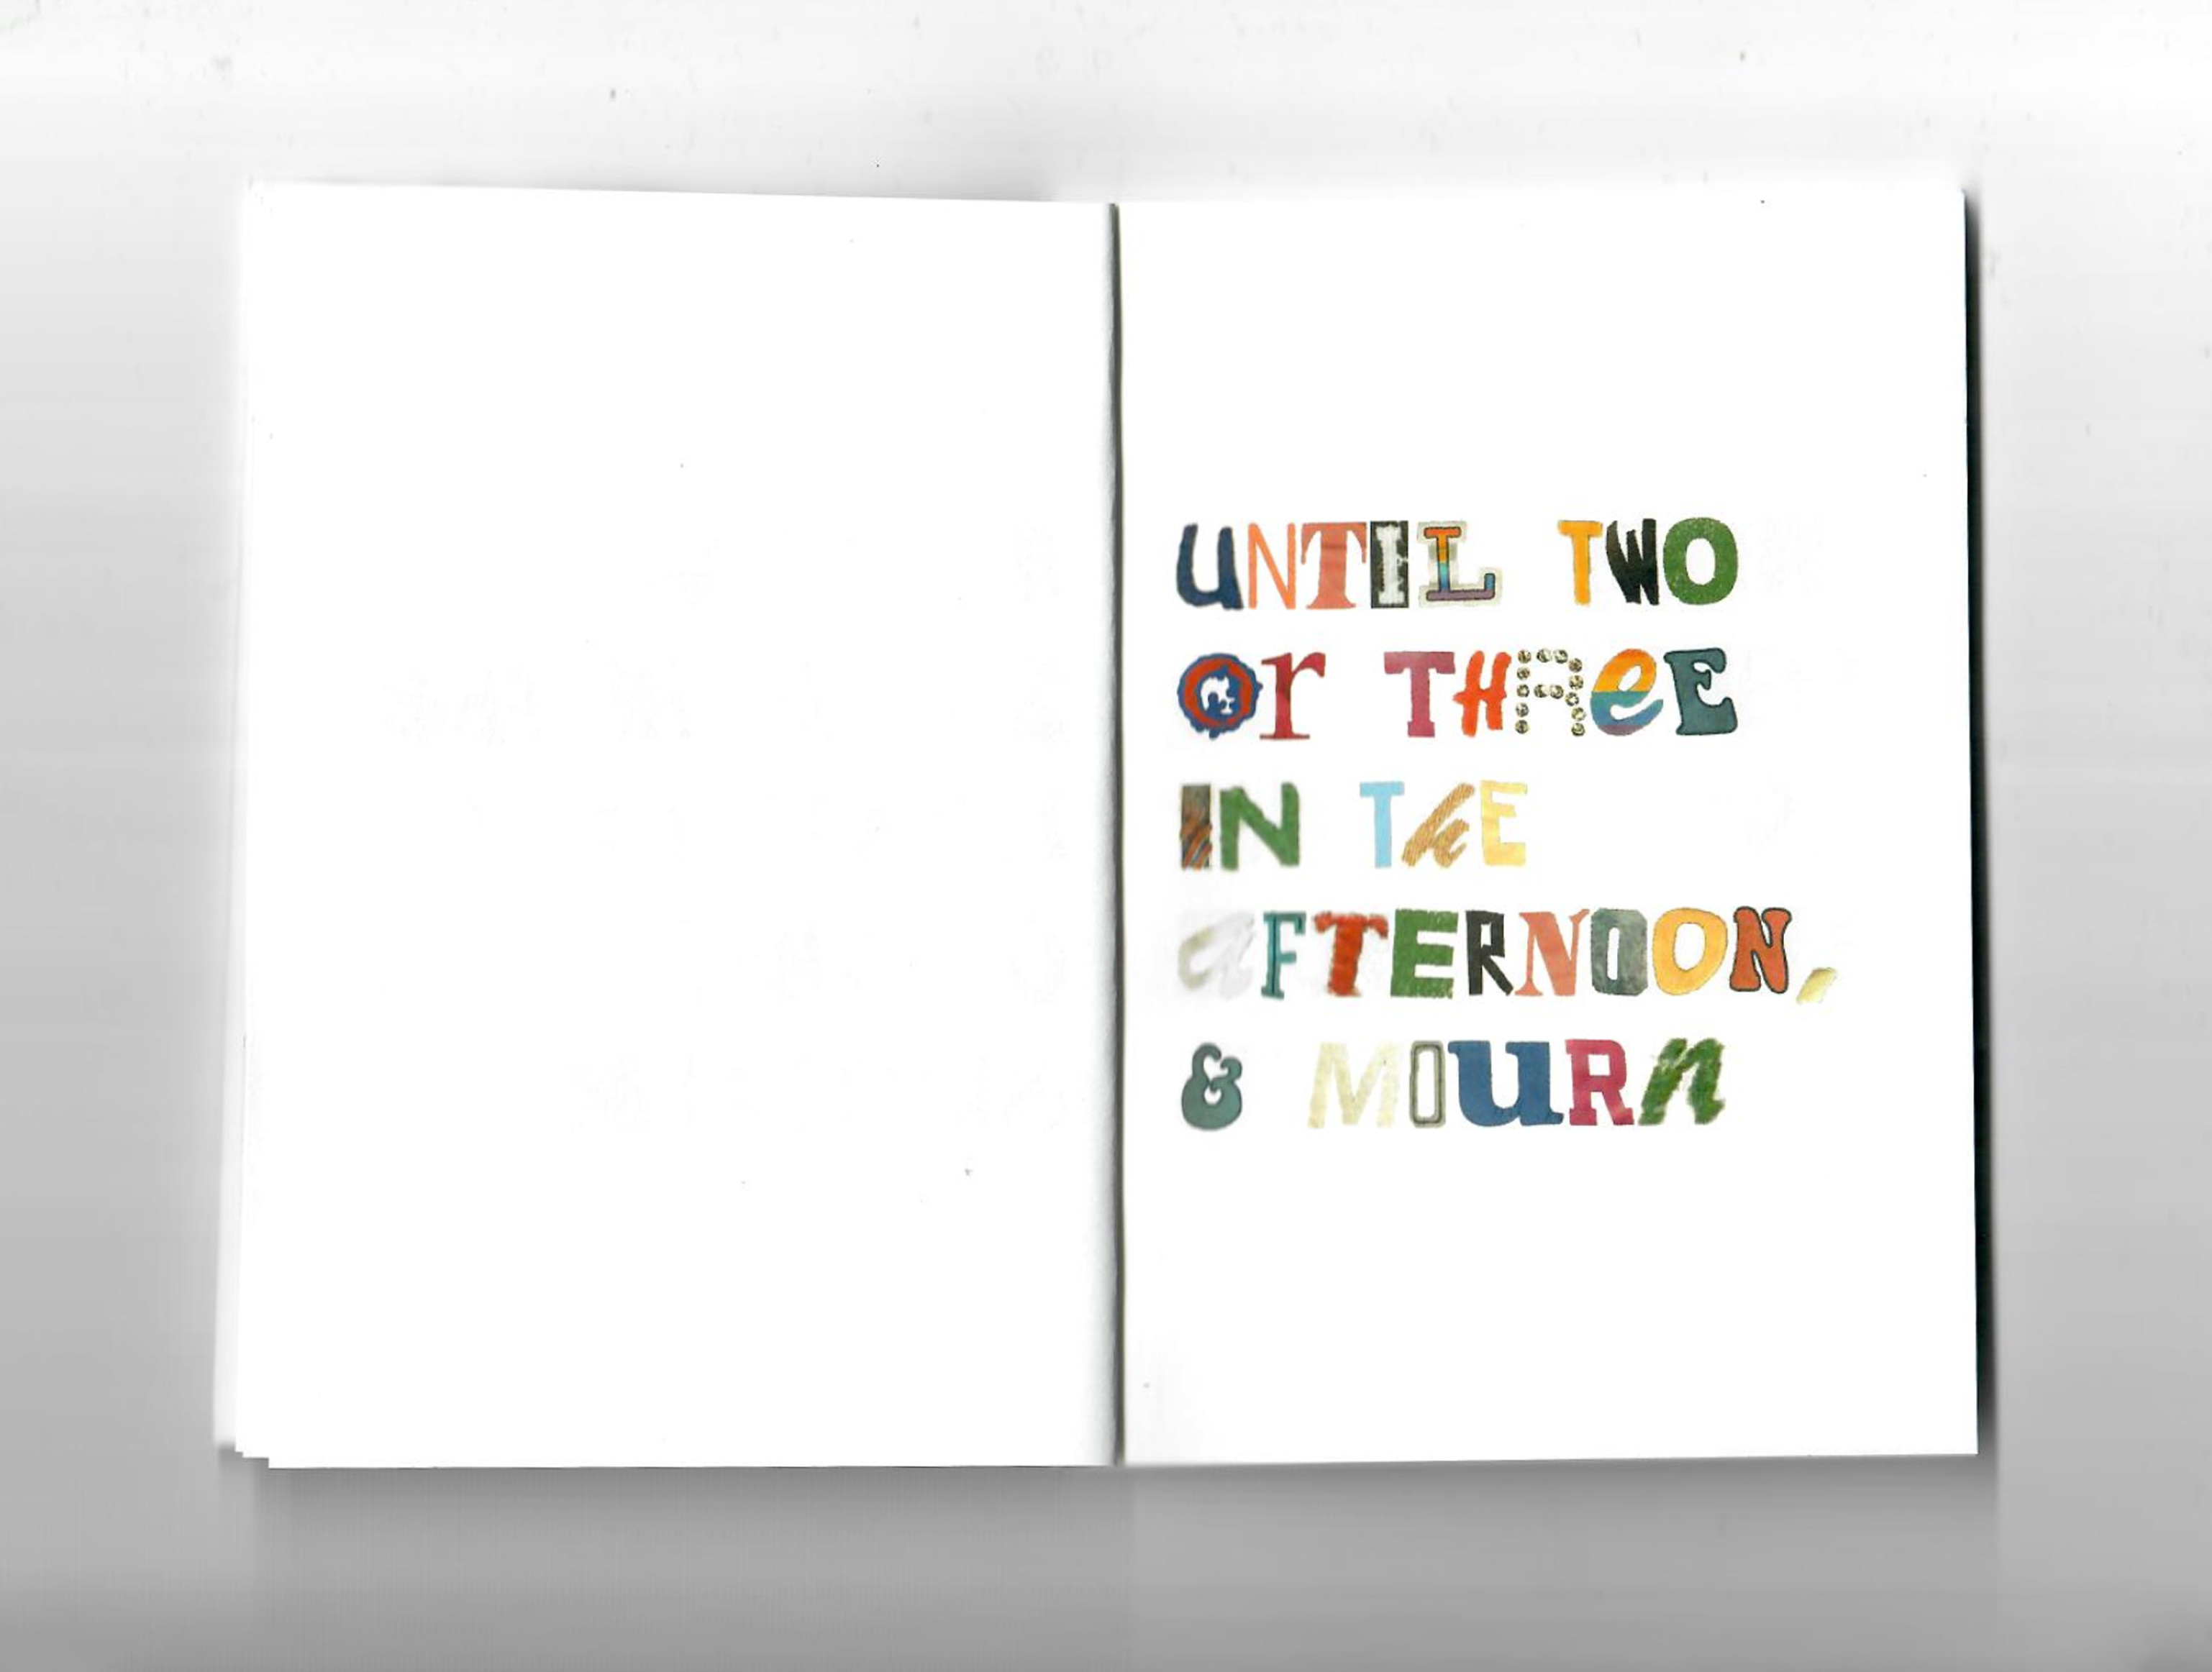 UNTIL TWO
Or THReE
IN ThE
aFTERNOON,
& MOuRn